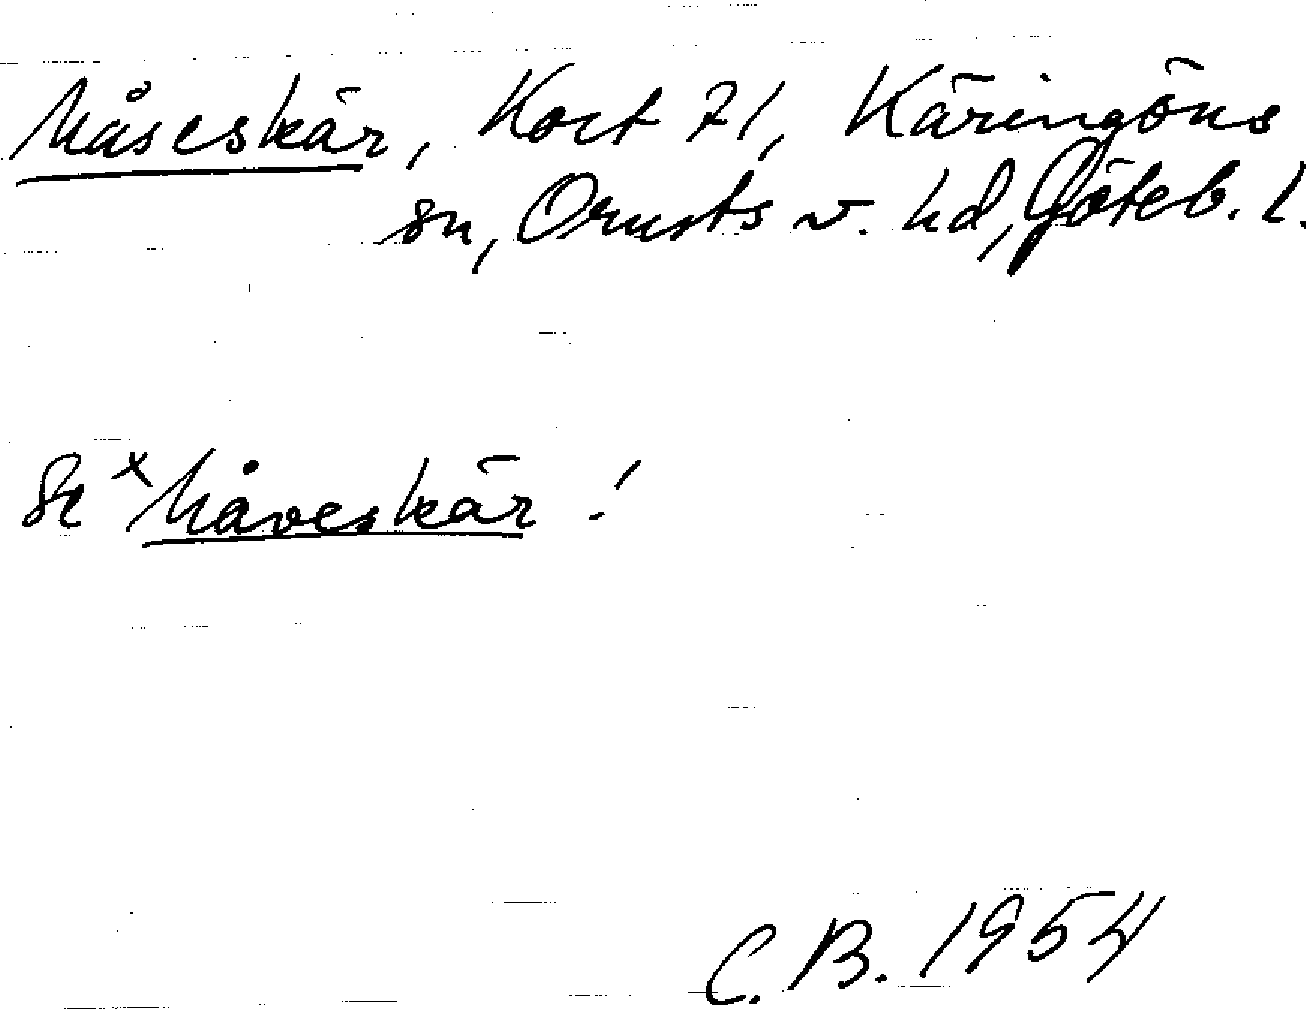 Måseskär, Kort 71, Käringöns
sn, Orusts v. hd, Göteb. l.
Se ˣMåveskär!
C.B. 1954